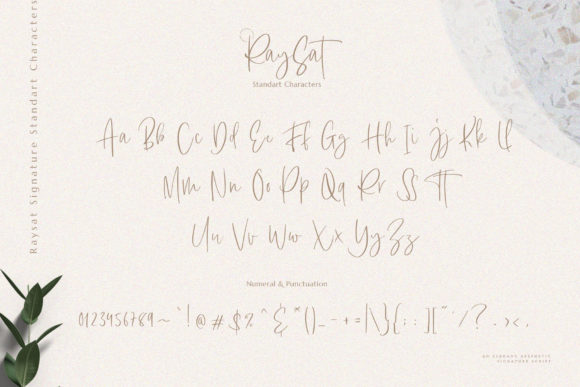 RaySat
Standart Characters
Raysat Signature Standart Characters
Aa Bb Cc Dd Ee Ff Gg Hh Ii Jj Kk Ll
Mm Nn Oo Pp Qq Rr Ss Tt
Uu Vv Ww Xx Yy Zz
Numeral & Punctuation
0123456789~`!@#$%^&*()_-+=|\}{;:]["'/?.><,
AN ELEGANT AESTHETIC
SIGNATURE SCRIPT